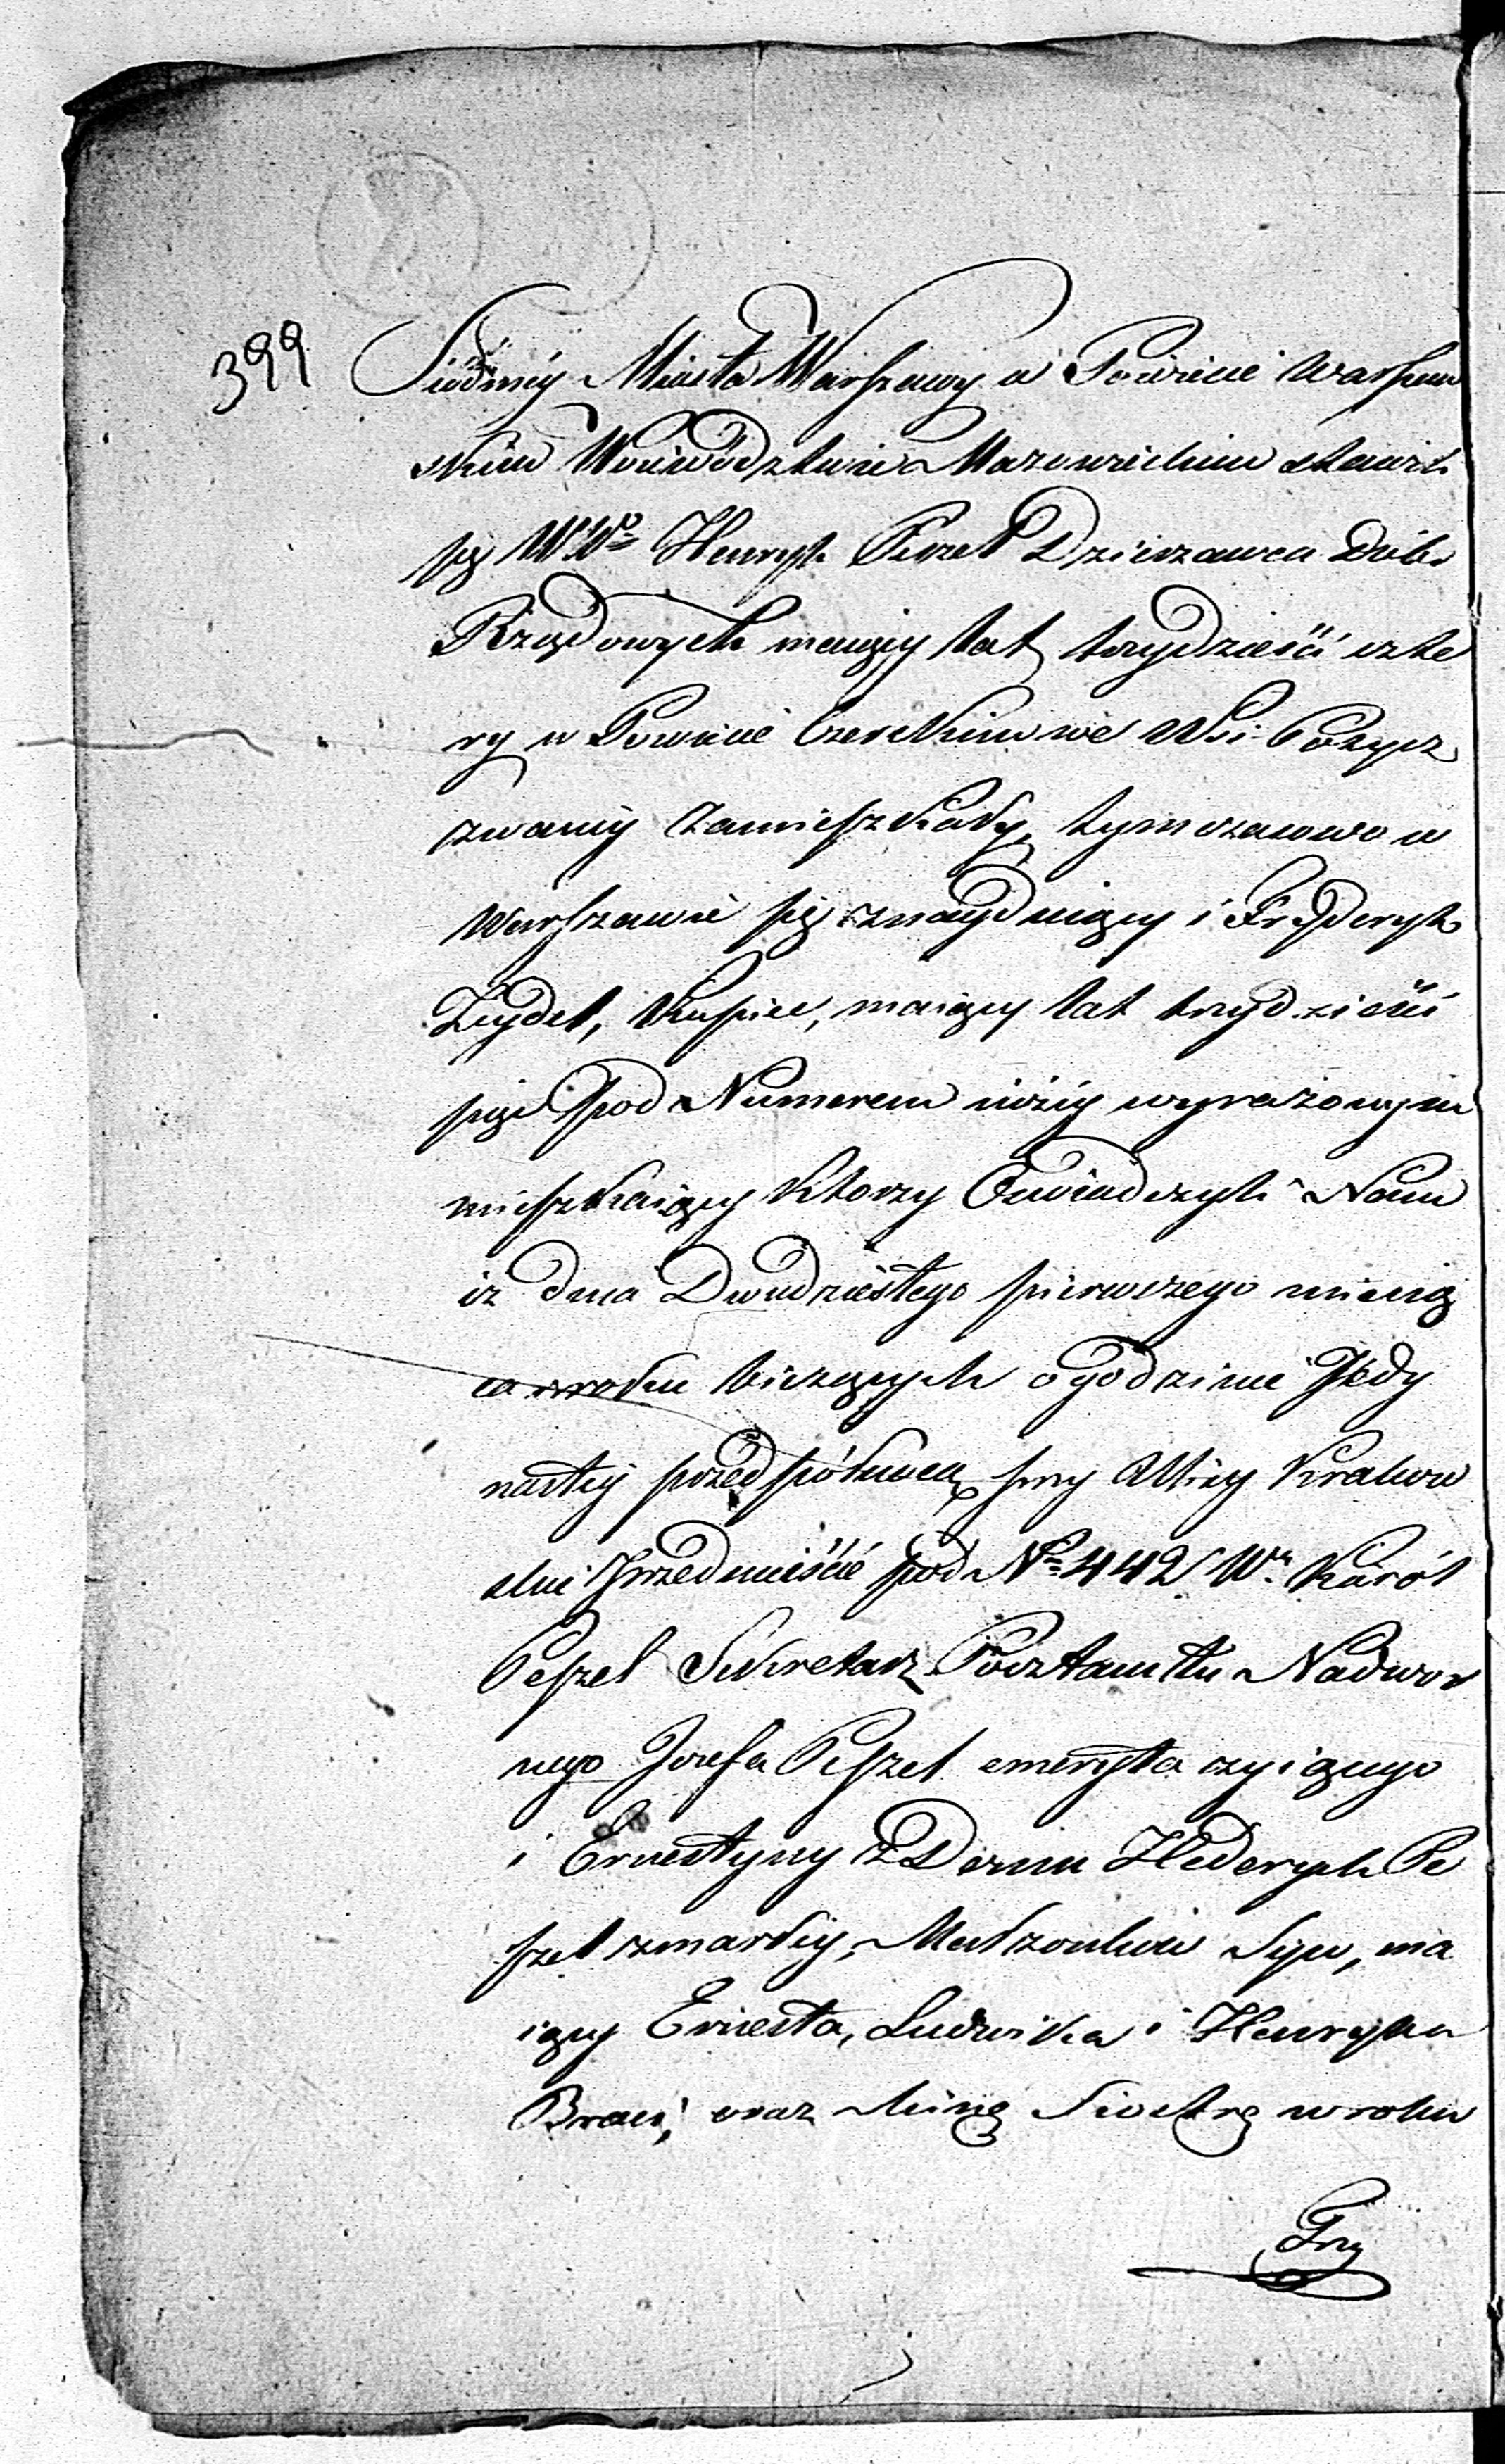 399 Siódméy Miasta Warszawy w Powiecie Warszaw
skim Woiewództwie Mazowieckim stawili
się WWo Henryk Peszel Dzierzawca Dóbr
Rządowych maiący lat trzydzieści czte
ry w Powiecie Czerskim we Wsi
zwaney zamieszkały, tymczasowo w
Warszawie się znayduiący i Fryderyk
Zeydel, Kupiec, maiący lat trzydzieści
pięć pod Numerem niżéy wyrażonym
mieszkaiący którzy Oswiadczyli Nam
iż dnia Dwudziestego pierwszego miesią
ca i roku bieżących o godzinie Jedy
nastéy przed północą przy Ulicy Krakow
skie Przedmieście pod No 442 Wy Karól
Peszel Sekretarz Pocztamtu Nadwor
nego Józefa Peszel emeryta żyiącego
i Ernestyny z Domu Hederych Pe
szel zmarłéy, Małzonków Syn, ma
iący Ernesta, Ludwika i Henryka
Braci, oraz Siostrę w roku
Trzy